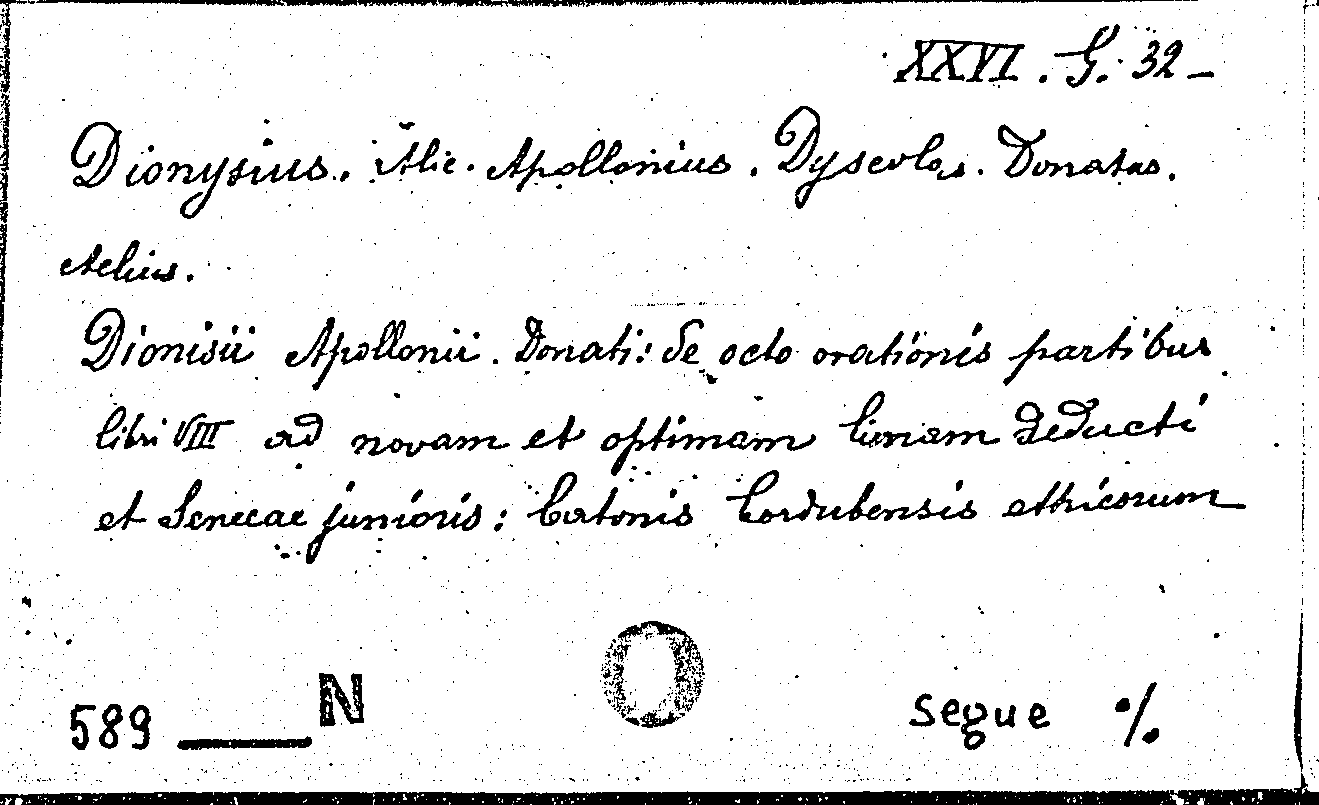 XXVI. G. 32 -
Dionysius. Alic. Apollonius. Dyscolos. Donatus.
Aelius.
Dionisii Apollonii. Donati: de octo orationis partibus
libri VIII ad novam et optimam limam deducti
et Senecae junioris: Catonis Cordubensis ethicorum
589 N O segue %